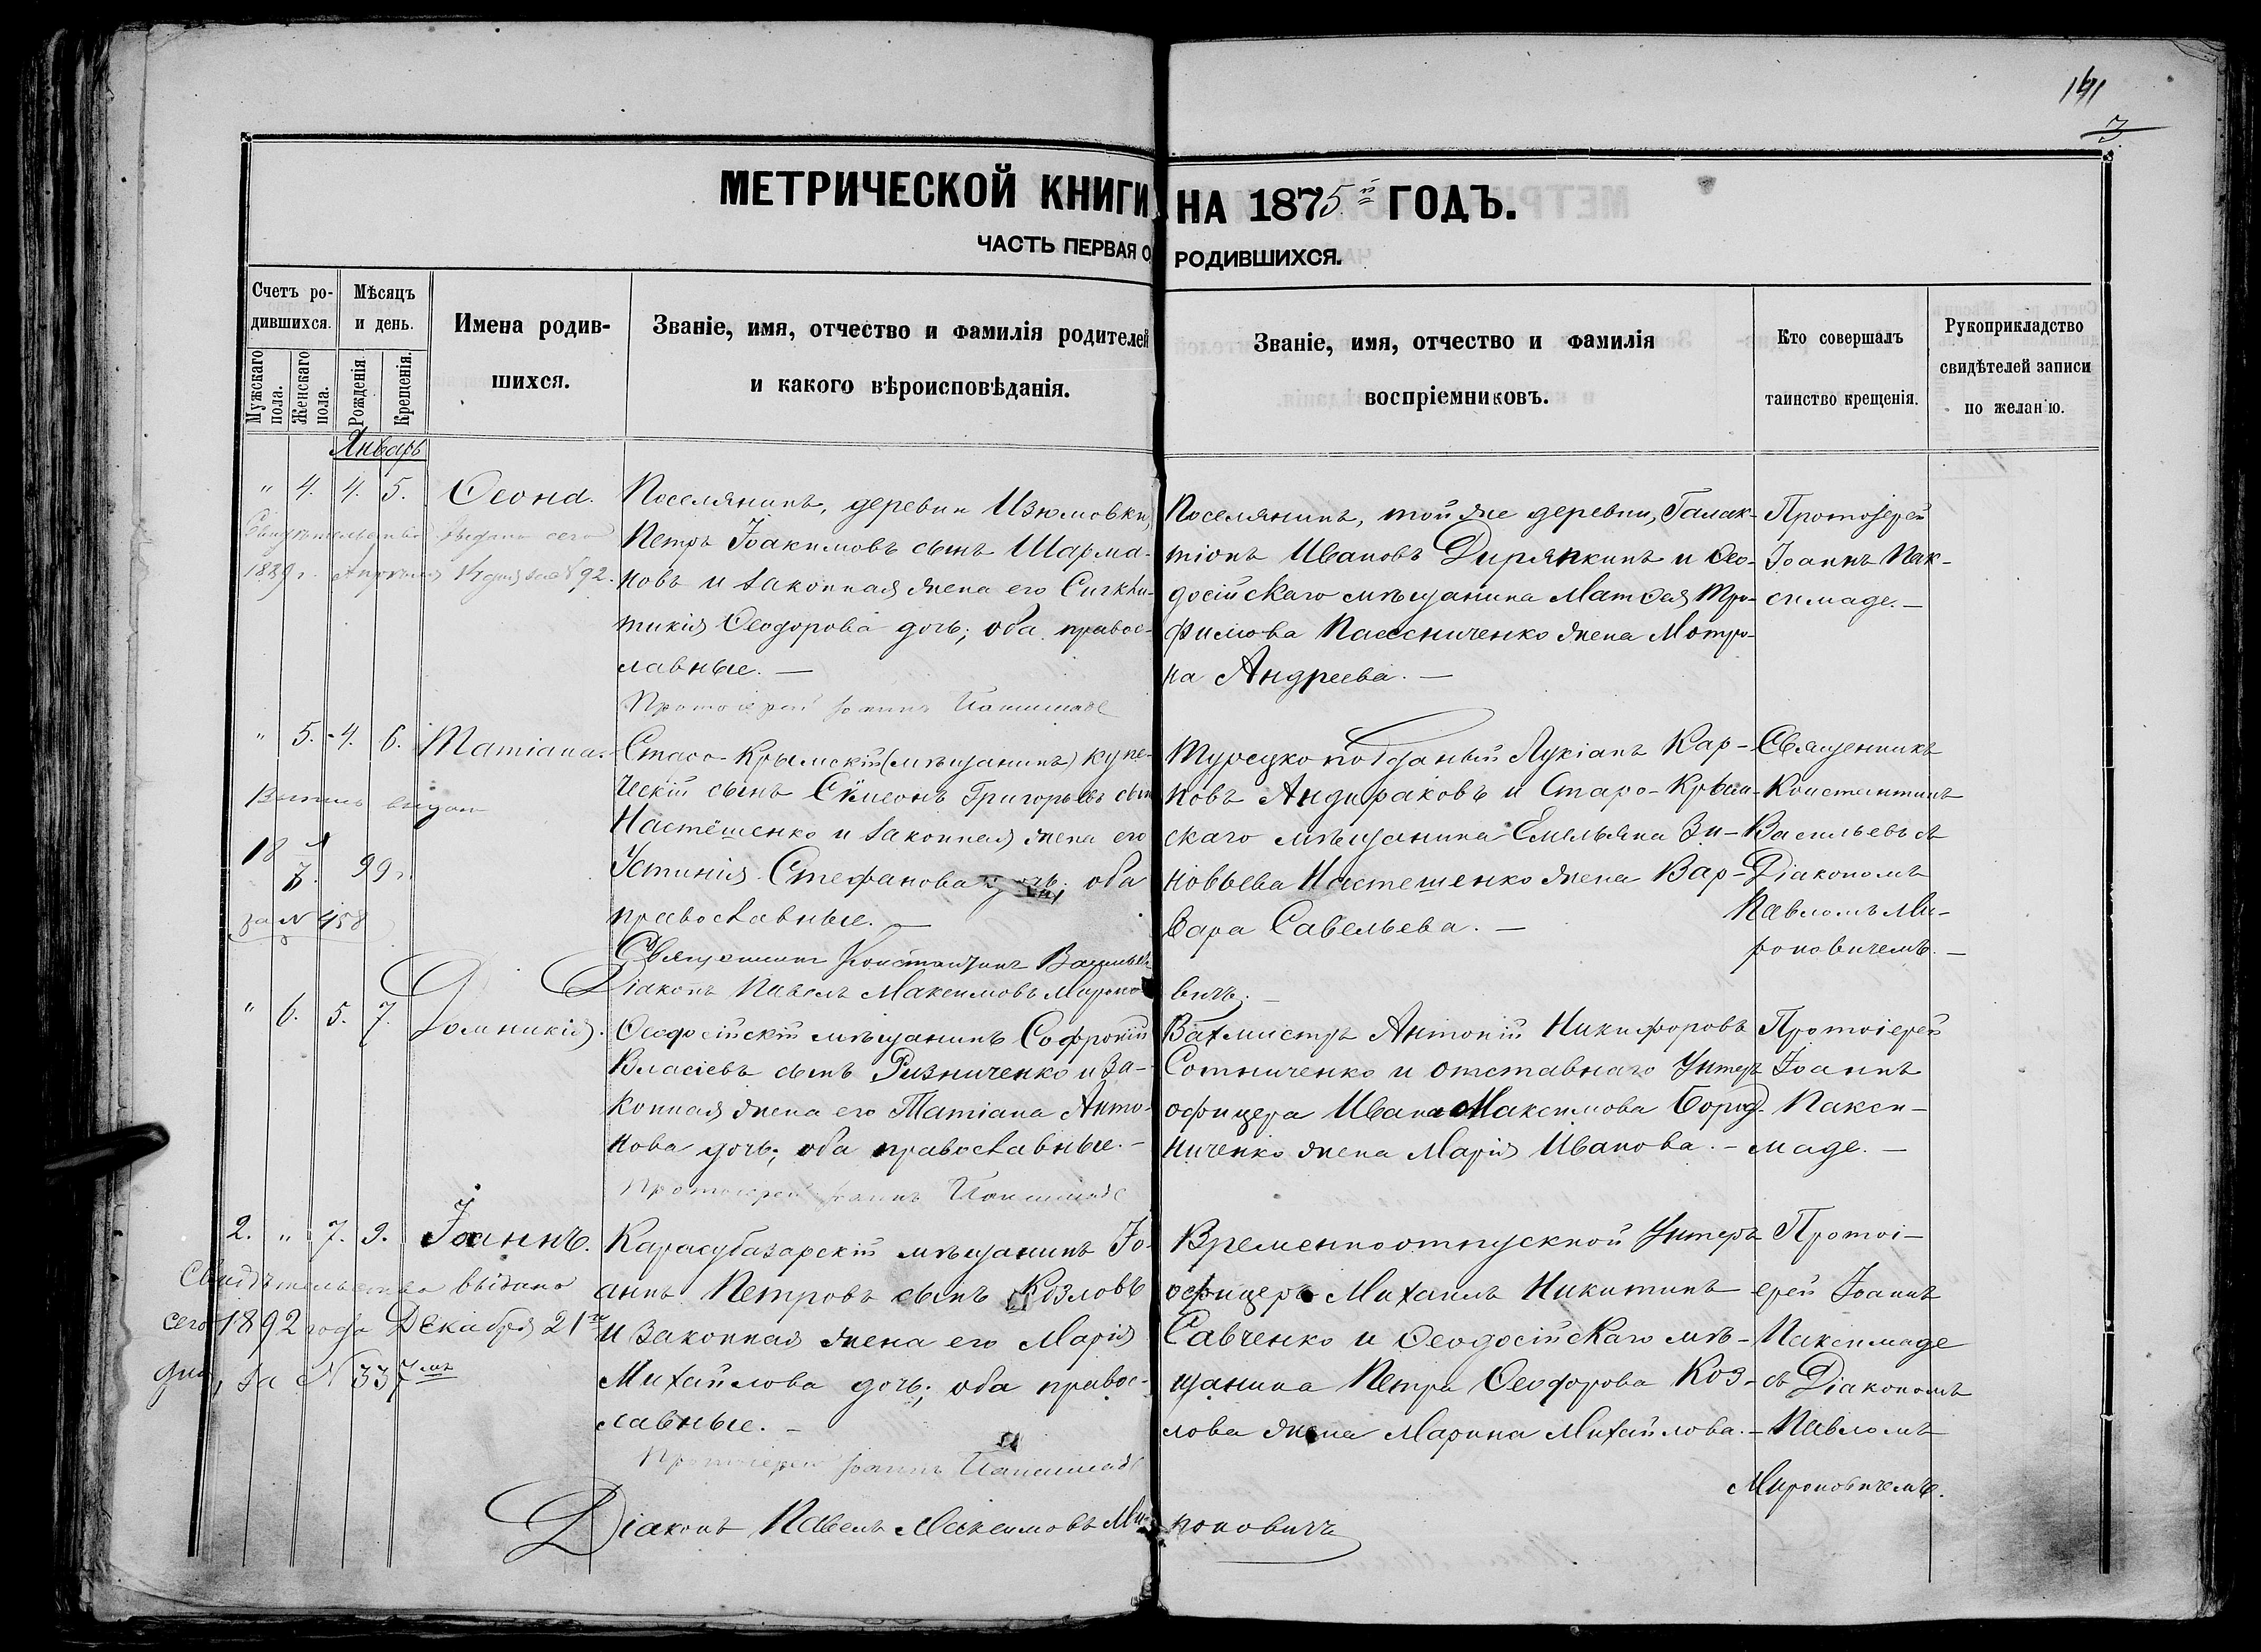 141
3.
МЕТРИЧЕСКОЙ КНИГИ НА 1875й ГОДЪ.
ЧАСТЬ ПЕРВАЯ О РОДИВШИХСЯ.
Счетъ ро-
дившихся.
Мужскаго пола.
Женскаго пола.
Мѣсяцъ
и день.
Рожденія
Крещенія.
Имена родив-
шихся.
Званіе, имя, отчество и фамилія родителей
и какого вѣроисповѣданія.
Званіе, имя, отчество и фамилія
воспріемниковъ.
Кто совершалъ
таинство крещенія.
Рукоприкладство
свидѣтелей записи
по желанію.
Январь
" 4. 4. 5.
Ѳеона.
Свидѣтельство выдано сего
1889 г. Апрѣля за № 92.
Поселянинъ, деревни Изюмовки,
Петръ Іоакимовъ сынъ Шарма-
новъ и законная жена его Сигкли-
тикія Ѳеодорова дочь; оба правос-
лавные. —
Протоіерей Іоаннъ Паксимаде
Поселянинъ, той же деревни, Галак-
тіонъ Ивановъ Дирляпкинъ и Ѳео-
досійскаго мѣщанина Матѳея Тро-
фимова Пасѣниченко жена Мотро-
на Андреева. —
Протоіерей
Іоаннъ Пак-
симаде. —
" 5. 4. 6.
Татіана.
выдан
18 99 г.
за № 458
Старо-Крымскій (мѣщанинъ) купе-
ческій сынъ Сѵмеонъ Григорьевъ сын
Настёшенко и законная жена его
Устинія Стефанова дочь; оба
православные. —
Священникъ Константинъ Васильевъ
Діаконъ Павелъ Максимовъ Мироновичъ. —
Турецкоподданый Лукіанъ Кар-
повъ Андираковъ и Старо-Крым-
скаго мѣщанина Емельяна Зи-
новьева Настешенко жена Вар-
вара Савельева. —
Священникъ
Константинъ
Васильевъ съ
Діакономъ
Павломъ Ми-
роновичемъ. —
" 6. 5. 7.
Домникія.
Ѳеодосійскій мѣщанинъ Софроній
Власіевъ сынъ Ризниченко и за-
конная жена его Татіана Анто-
нова дочь; оба православные. —
Протоіерей Іоаннъ Паксимаде
Вахмистръ Антоній Никифоровъ
Сотниченко и отставнаго Унтеръ
офицера Ивана Максимова Бород-
ниченко жена Марія Иванова. —
Протоіерей
Іоаннъ
Пакси-
маде. —
2. " 7. 9.
Іоаннъ.
Свидѣтельство выдано
сего 1892 года Декабря 21го
дня, за № 337мъ
Карасубазарскій мѣщанинъ Іо-
аннъ Петровъ сынъ Козловъ
и законная жена его Марія
Михайлова дочь; оба правос-
лавные. —
Протоіерей Іоаннъ Паксимаде
Діаконъ Павелъ Максимовъ Мироновичъ
Временноотпускной Унтеръ
офицеръ Михаилъ Никитинъ
Савченко и Ѳеодосійскаго мѣ-
щанина Петра Ѳеодорова Коз-
лова жена Марина Михайлова. —
Протоі-
ерей Іоаннъ
Паксимаде
съ Діакономъ
Павломъ
Мироновичемъ.